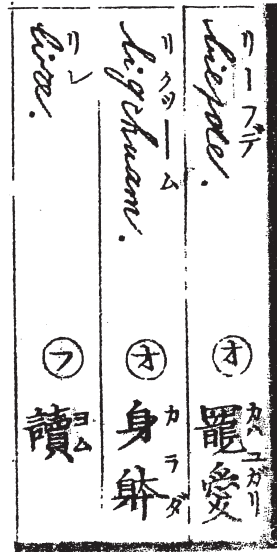 リーブデ
liepde. ㋔ 寵愛
カハユガリ
リクツーム
ligchaam. ㋔ 身躰
カラダ
リレ
lire. ㋫ 讀
ヨム